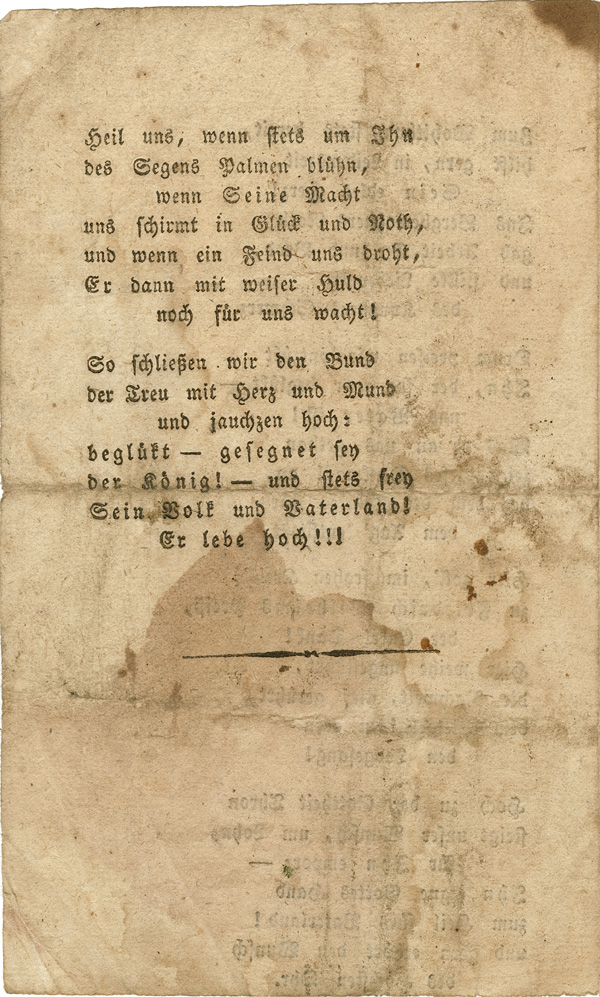 Heil uns, wenn stets um Ihn
des Segens Palmen blühn,
wenn Seine Macht
uns schirmt in Glück und Noth,
und wenn ein Feind uns droht,
Er dann mit weiser Huld
noch für uns wacht!
So schließen wir den Bund
der Treu mit Herz und Mund
und jauchzen hoch:
beglükt — gesegnet sey
der König! — und stets frey
Sein Volk und Vaterland!
Er lebe hoch!!!